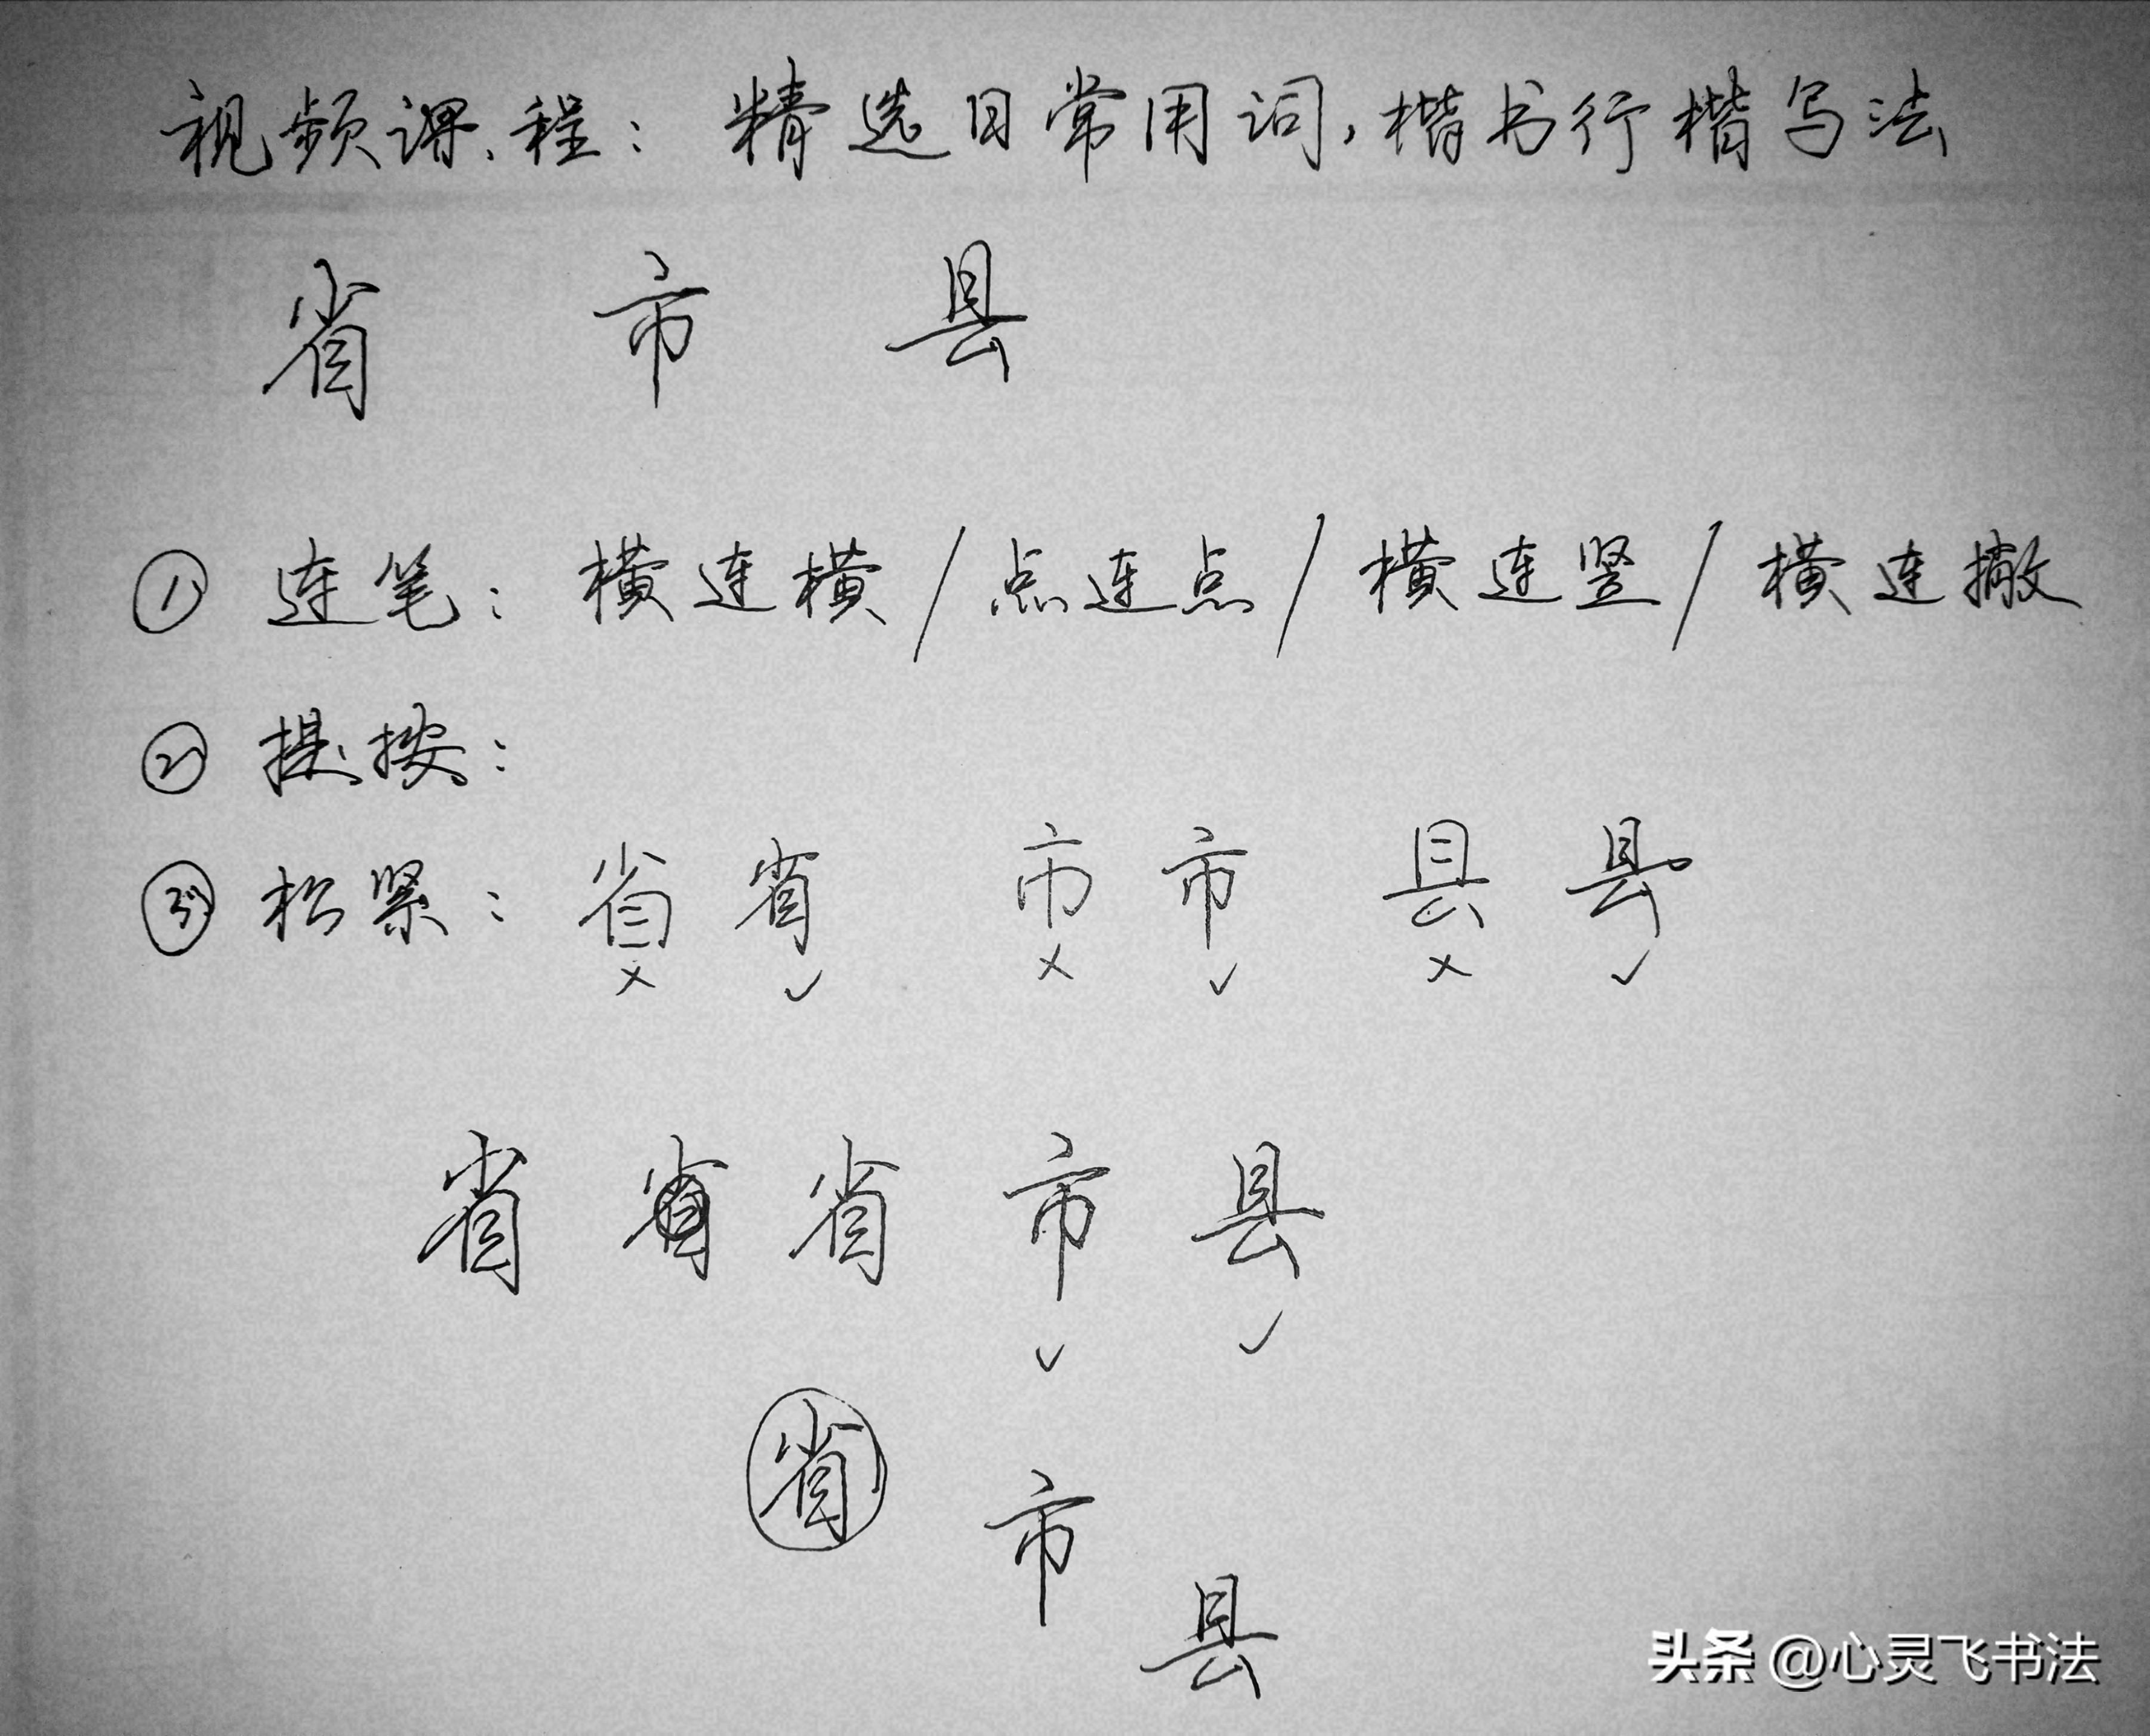 视频课程：精选日常用词，楷书行楷写法
省 市 县
① 连笔：横连横/点连点/横连竖/横连撇
② 提按：
③ 松紧：省 省 市 市 县 县
× ✓ × ✓ × ✓
省 省 省 市 县
✓ ✓
省
市
县
头条 @心灵飞书法